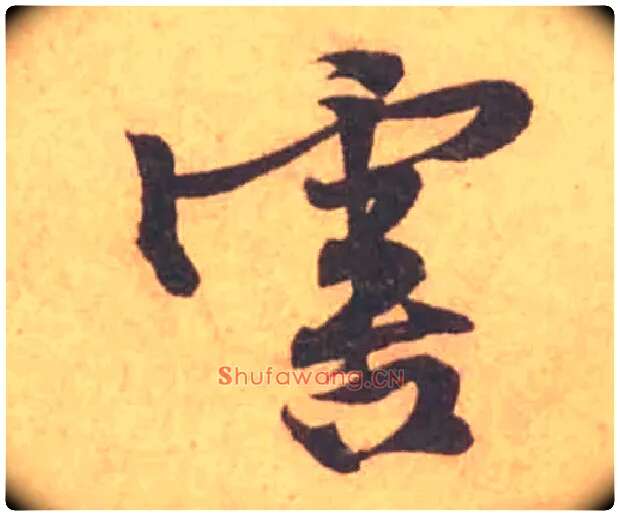 害
Shufawang.CN